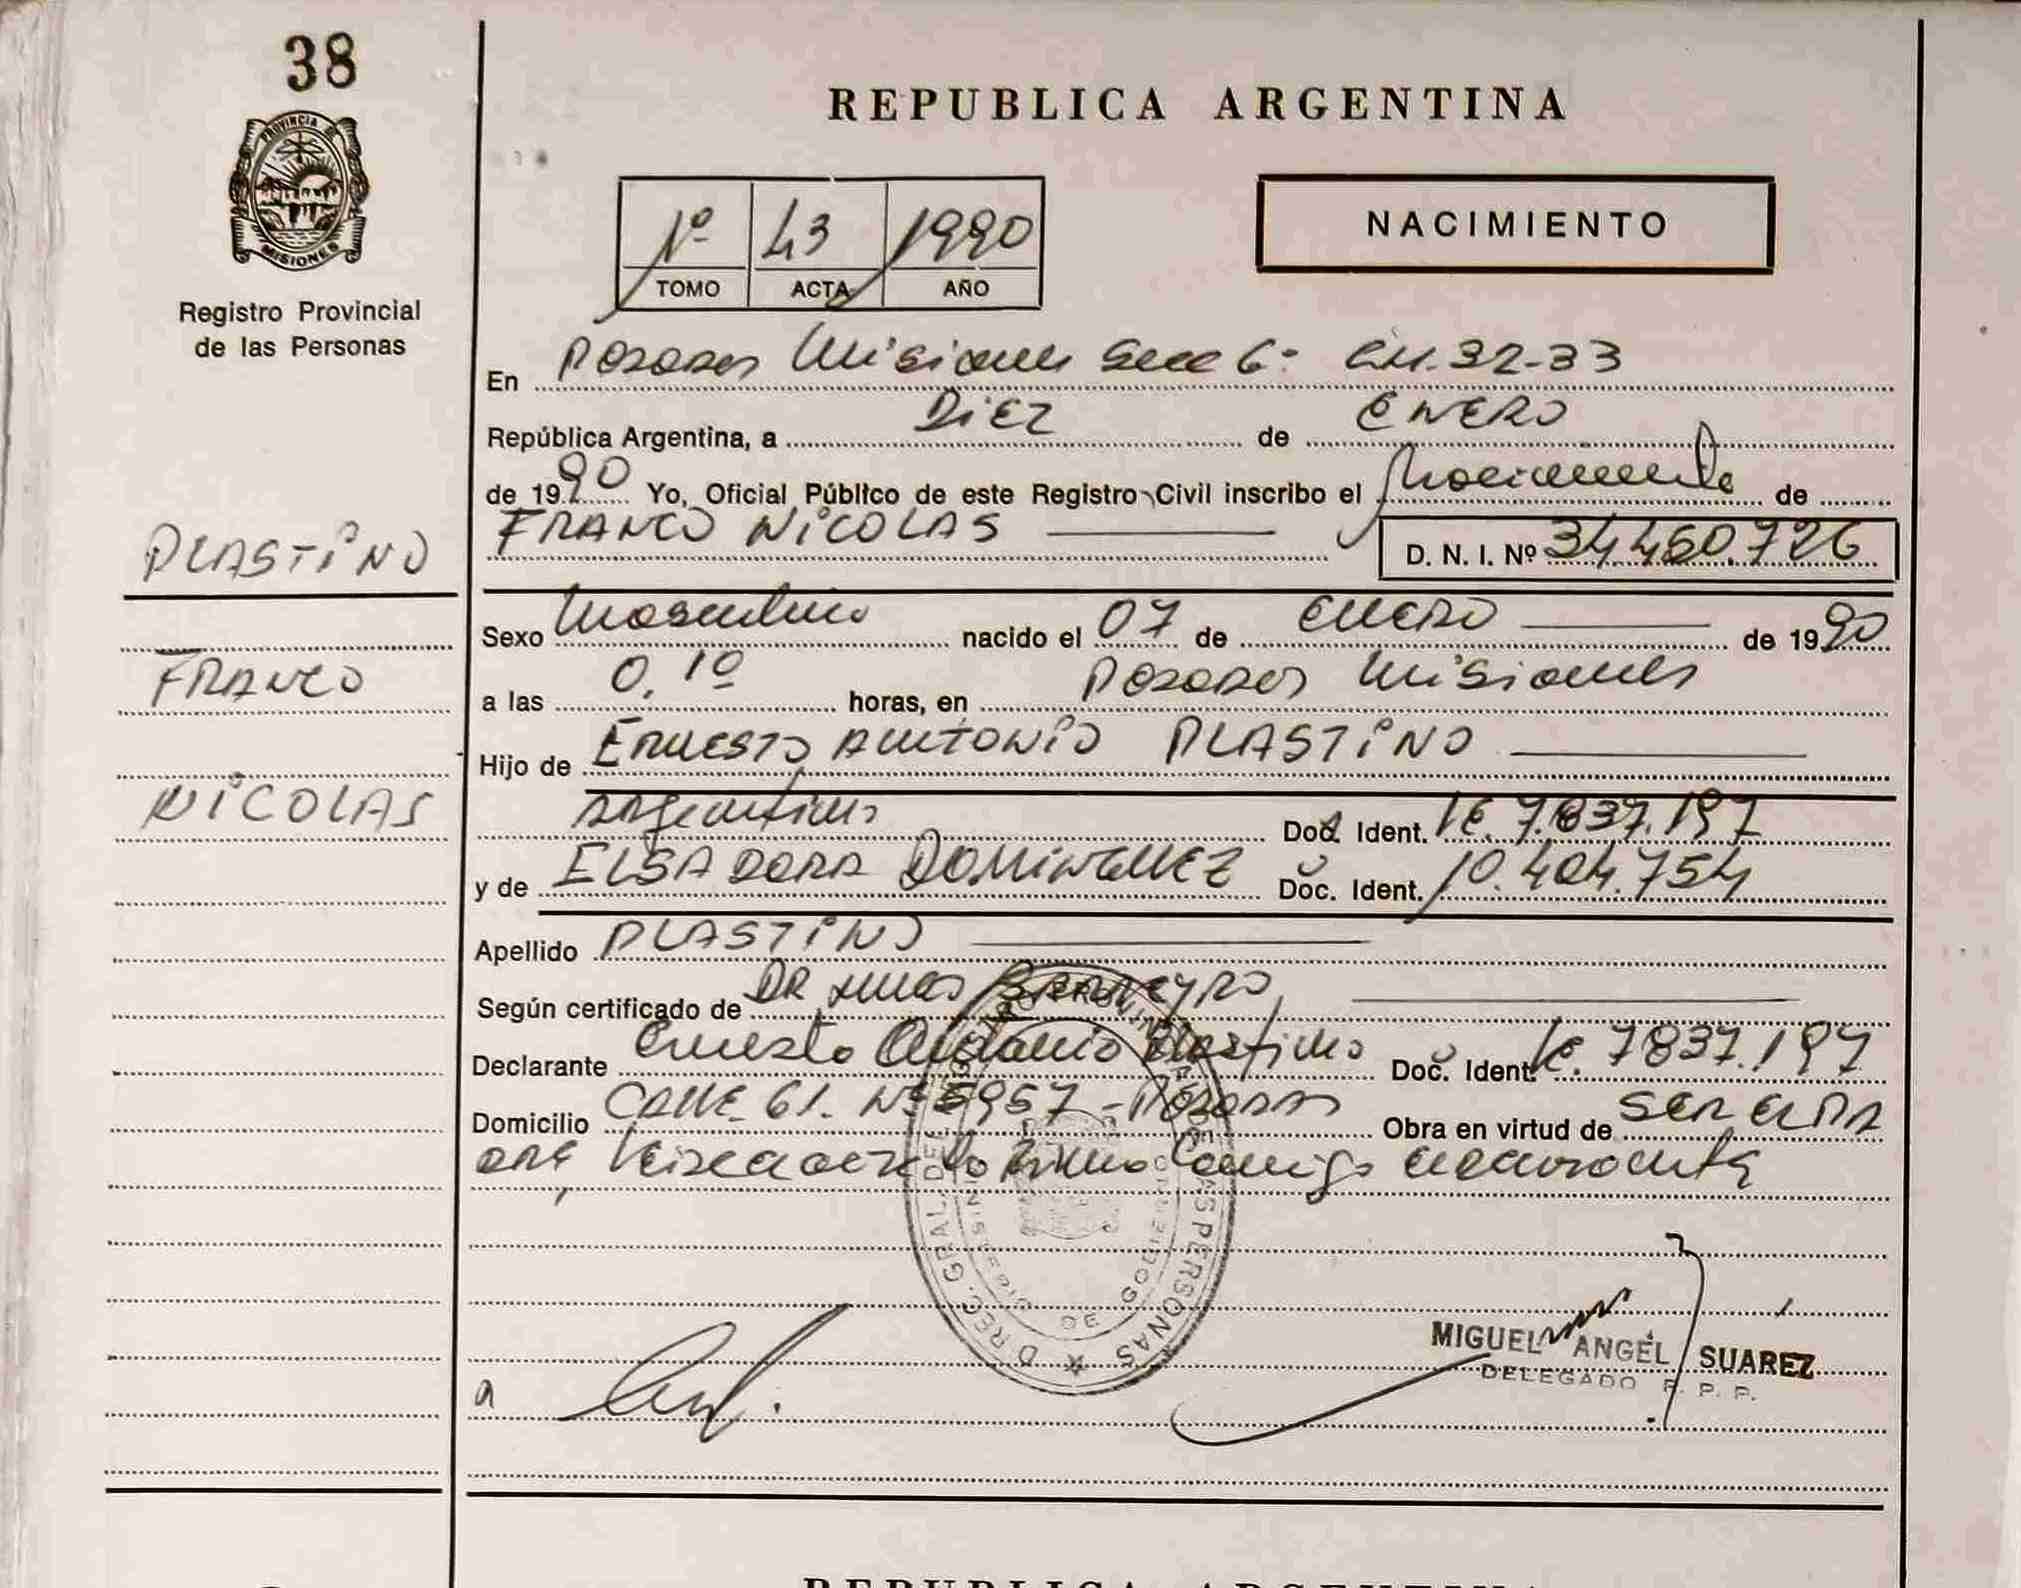 38
PROVINCIA DE
MISIONES
Registro Provincial
de las Personas
REPUBLICA ARGENTINA
1º 43 1990
TOMO ACTA AÑO
NACIMIENTO
En Posadas Misiones Secc 6º CH. 32-33
República Argentina, a DIEZ de ENERO
de 1990 Yo, Oficial Público de este Registro Civil inscribo el Nacimiento de
FRANCO NICOLAS D. N. I. Nº 34.460.726
PLASTINO
FRANCO
NICOLAS
Sexo Masculino nacido el 07 de ENERO de 1990
a las 0,10 horas, en Posadas Misiones
Hijo de ERNESTO ANTONIO PLASTINO
argentino Doc. Ident. 7.837.197
y de ELSA DORA DOMINGUEZ Doc. Ident. 10.404.754
Apellido PLASTINO
Según certificado de DR
Declarante Ernesto Antonio Plastino Doc. Ident. 7837.197
Domicilio CALLE 61. Nº 5957 - POSADAS Obra en virtud de SER EL PA
DRE,
DIREC. GRAL. DEL REGISTRO PROVINCIAL DE LAS PERSONAS
MIGUEL ANGEL SUAREZ
DELEGADO R. P. P.
REPUBLICA ARGENTINA